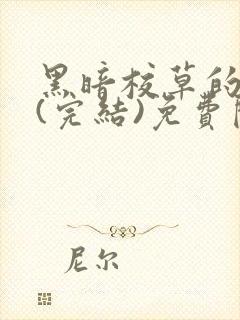 黑暗校草的
(完結)免費
尼尔